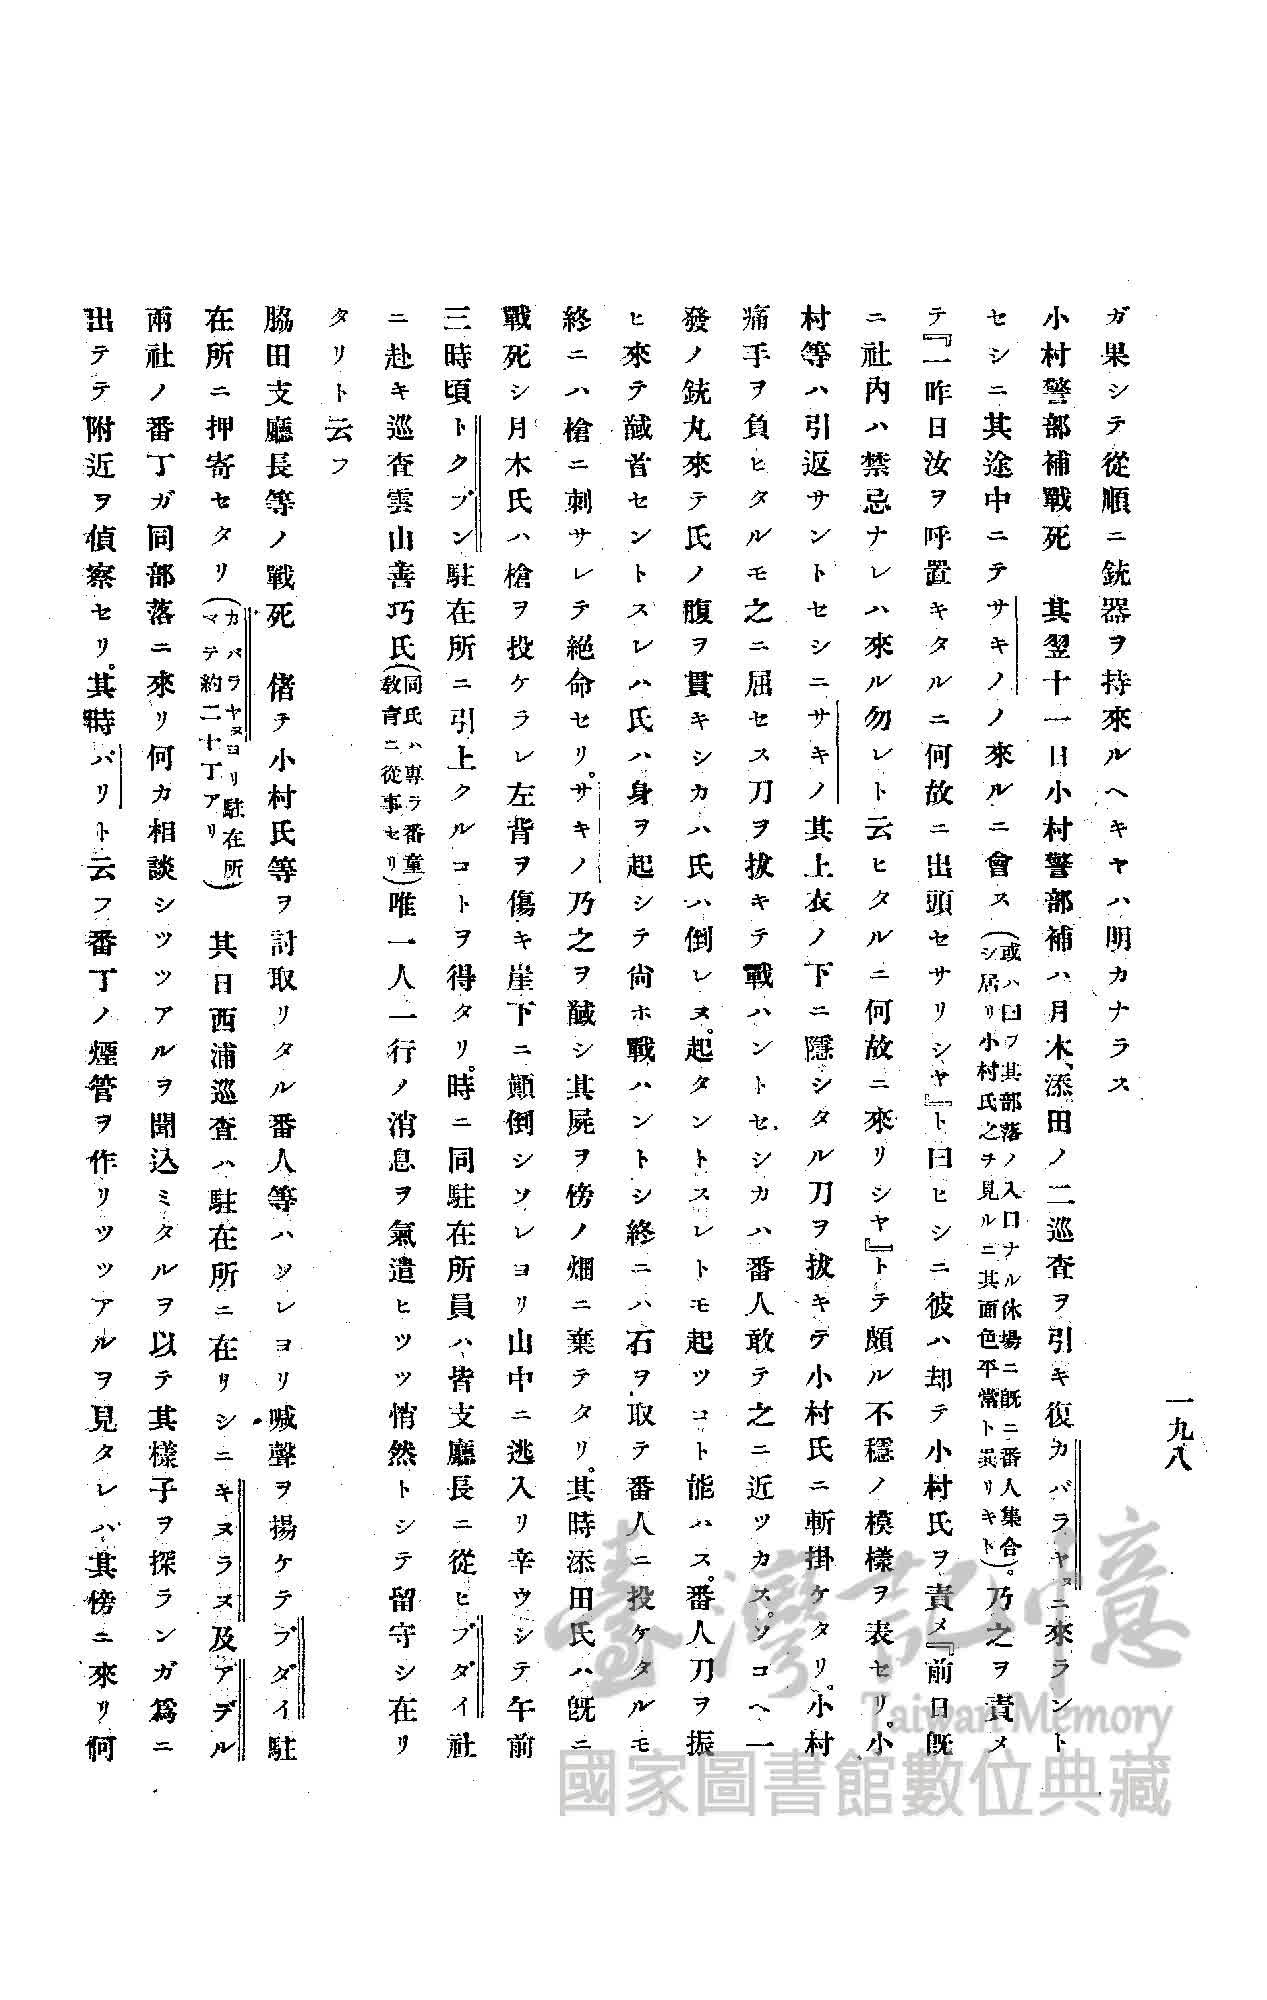 一九八
ガ果シテ從順ニ銃器ヲ持來ルヘキヤハ明カナラス
小村警部補戰死　其翌十一日小村警部補ハ月木、添田ノ二巡査ヲ引キ復カバラヤヌニ來ラント
セシニ其途中ニテサキノノ來ルニ會ス(或ハ曰フ其部落ノ入口ナル休場ニ既ニ番人集合シ居リ小村氏之ヲ見ルニ其面色平常ト異リキト)。乃之ヲ責メ
テ『一昨日汝ヲ呼置キタルニ何故ニ出頭セサリシヤ』ト曰ヒシニ彼ハ却テ小村氏ヲ責メ『前日既
ニ社内ハ禁忌ナレハ來ル勿レト云ヒタルニ何故ニ來リシヤ』トテ頗ル不穩ノ模樣ヲ表セリ。小
村等ハ引返サントセシニサキノ其上衣ノ下ニ隱シタル刀ヲ拔キテ小村氏ニ斬掛ケタリ。小村
痛手ヲ負ヒタルモ之ニ屈セス刀ヲ拔キテ戰ハントセシカハ番人敢テ之ニ近ツカス。ソコヘ一
發ノ銃丸來テ氏ノ腹ヲ貫キシカハ氏ハ倒レヌ。起タントスレトモ起ツコト能ハス。番人刀ヲ振
ヒ來テ馘首セントスレハ氏ハ身ヲ起シテ尙ホ戰ハントシ終ニハ石ヲ取テ番人ニ投ケタルモ
終ニハ槍ニ刺サレテ絶命セリ。サキノ乃之ヲ馘シ其屍ヲ傍ノ畑ニ棄テタリ。其時添田氏ハ既ニ
戰死シ月木氏ハ槍ヲ投ケラレ左背ヲ傷キ崖下ニ顚倒シソレヨリ山中ニ逃入リ辛ウシテ午前
三時頃トクブン駐在所ニ引上クルコトヲ得タリ。時ニ同駐在所員ハ皆支廳長ニ從ヒブダイ社
ニ赴キ巡査雲山善巧氏(同氏ハ專ラ番童敎育ニ從事セリ)唯一人一行ノ消息ヲ氣遣ヒツツ悄然トシテ留守シ在リ
タリト云フ
脇田支廳長等ノ戰死　偖テ小村氏等ヲ討取リタル番人等ハソレヨリ喊聲ヲ揚ケテブダイ駐
在所ニ押寄セタリ(カバラヤヌヨリ駐在所マテ約二十丁アリ)　其日西浦巡査ハ駐在所ニ在リシニキヌラヌ及アデル
兩社ノ番丁ガ同部落ニ來リ何カ相談シツツアルヲ聞込ミタルヲ以テ其樣子ヲ探ランガ爲ニ
出テテ附近ヲ偵察セリ。其時バリト云フ番丁ノ煙管ヲ作リツツアルヲ見タレバ其傍ニ來リ何
臺灣記憶
Taiwan Memory
國家圖書館數位典藏